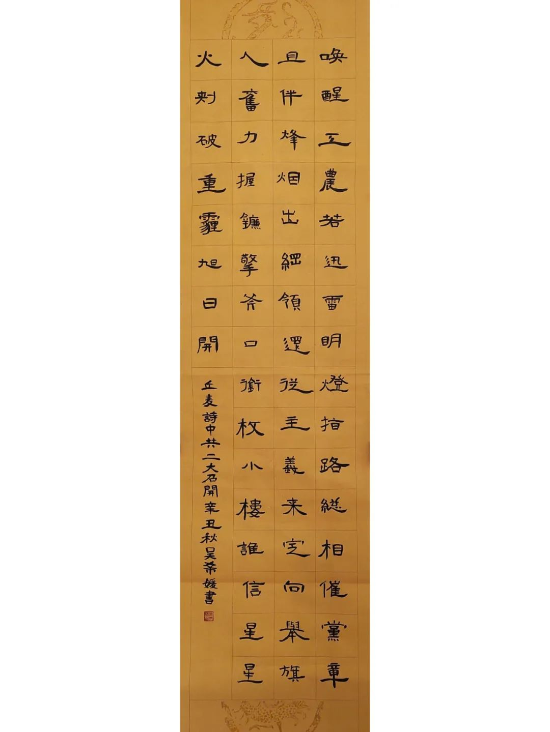 喚醒工農若迅雷明燈指路總相催黨章
且伴烽烟出綱領還從主義来定向舉旗
人奮力握鐮擎斧口銜枚小樓誰信星星
火刺破重霾旭日開
丘麦詩中共二大召開辛丑秋吴希媛書